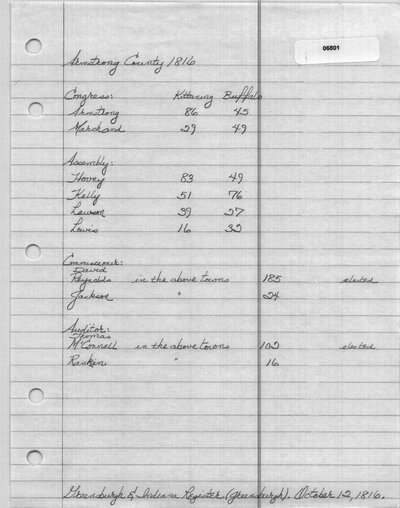 06801
Armstrong County 1816
Congress: Kittaning Buffalo
Armstrong 86 45
Marchand 29 49
Assembly:
Hovey 83 49
Kelly 51 76
Lawson 39 27
Lewis 16 32
Commissioner:
David
Reynolds in the above towns 185 elected
Jackson " 24
Auditor:
Thomas
McConnell in the above towns 102 elected
Rankin " 16
Greensburgh & Indiana Register (Greensburgh). October 12, 1816.